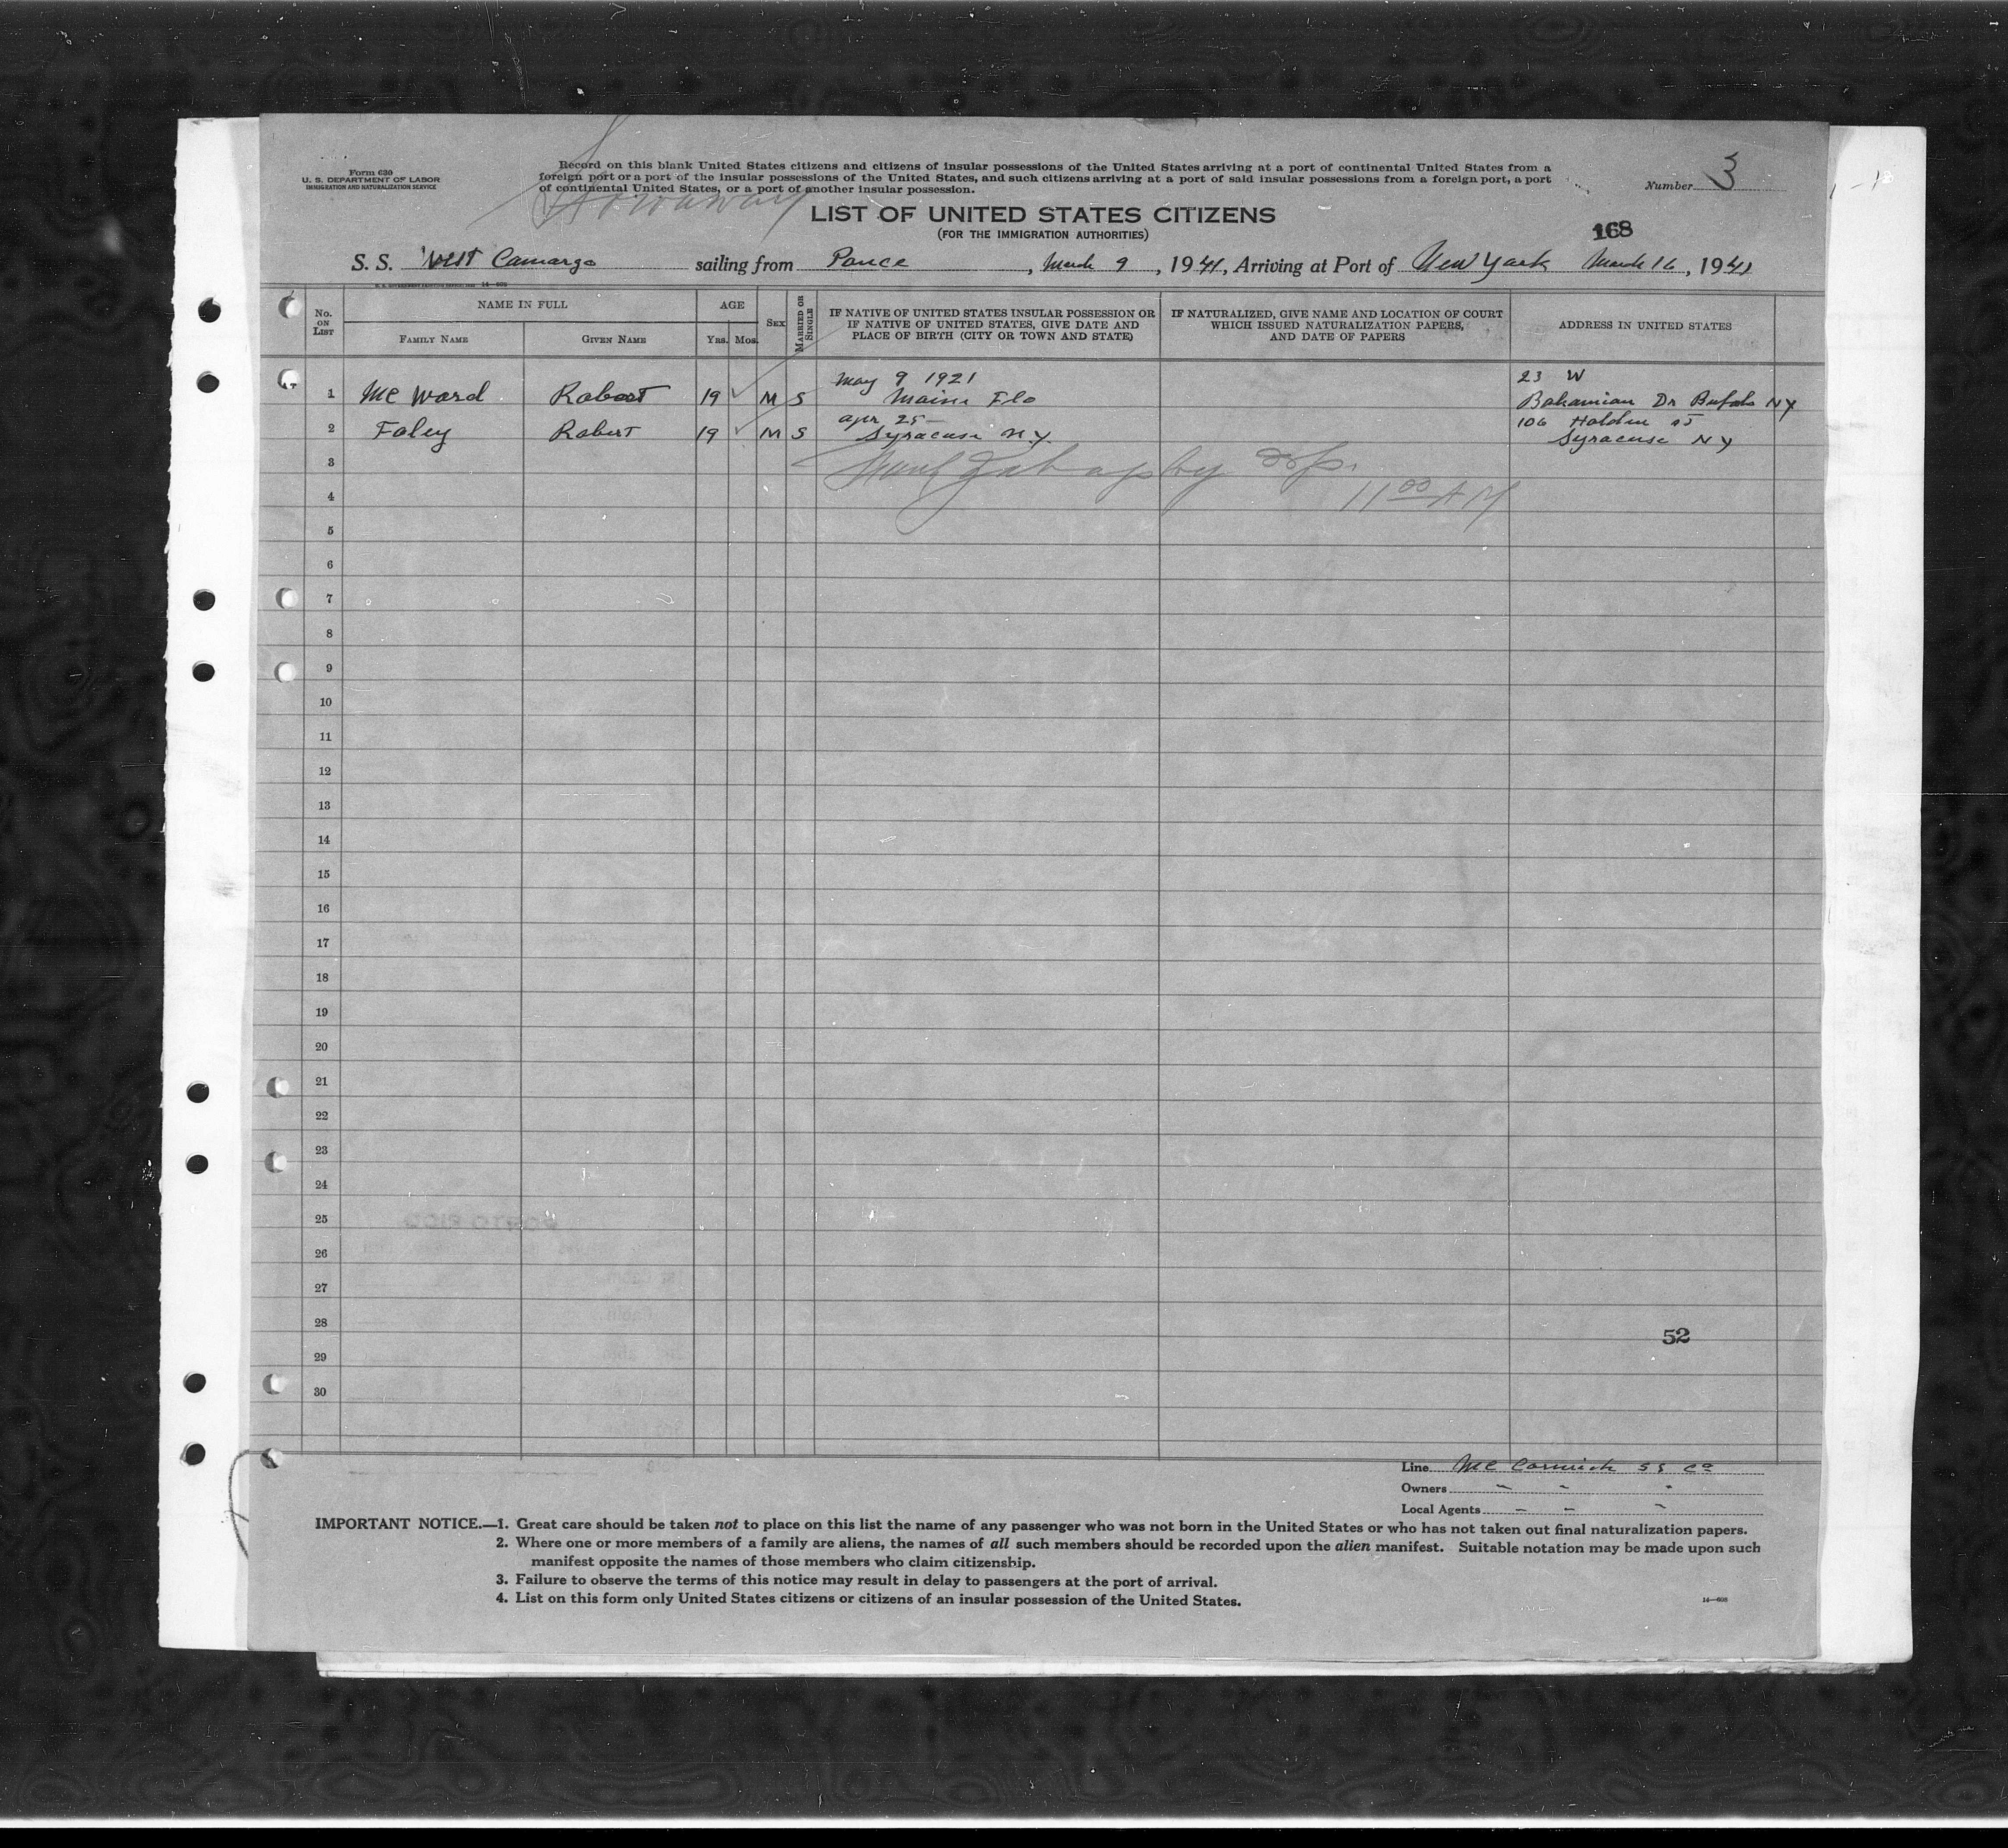 Form 630
U. S. DEPARTMENT OF LABOR
IMMIGRATION AND NATURALIZATION SERVICE
Record on this blank United States citizens and citizens of insular possessions of the United States arriving at a port of continental United States from a
foreign port or a port of the insular possessions of the United States, and such citizens arriving at a port of said insular possessions from a foreign port, a port
of continental United States, or a port of another insular possession.
Number 3
LIST OF UNITED STATES CITIZENS
(FOR THE IMMIGRATION AUTHORITIES)
168
S. S. West Camargo sailing from Ponce, March 9, 1941, Arriving at Port of New York March 16, 1941
No. ON LIST
NAME IN FULL
FAMILY NAME
GIVEN NAME
AGE
Yrs. Mos.
SEX
MARRIED OR SINGLE
IF NATIVE OF UNITED STATES INSULAR POSSESSION OR
IF NATIVE OF UNITED STATES, GIVE DATE AND
PLACE OF BIRTH (CITY OR TOWN AND STATE)
IF NATURALIZED, GIVE NAME AND LOCATION OF COURT
WHICH ISSUED NATURALIZATION PAPERS,
AND DATE OF PAPERS
ADDRESS IN UNITED STATES
May 9 1921 23 W
1 Mc Ward Robert 19 M S Maine Flo Bahamian Dr Bufalo NY
apr 25 106 Holden st
2 Foley Robert 19 M S Syracuse N.Y. Syracuse N Y
3
4 11 00 A M
5
6
7
8
9
10
11
12
13
14
15
16
17
18
19
20
21
22
23
24
25
26
27
28
52
29
30
Line Mc Cormick S S Co
Owners " " "
Local Agents " " "
IMPORTANT NOTICE.—1. Great care should be taken not to place on this list the name of any passenger who was not born in the United States or who has not taken out final naturalization papers.
2. Where one or more members of a family are aliens, the names of all such members should be recorded upon the alien manifest. Suitable notation may be made upon such
manifest opposite the names of those members who claim citizenship.
3. Failure to observe the terms of this notice may result in delay to passengers at the port of arrival.
4. List on this form only United States citizens or citizens of an insular possession of the United States.
14—608